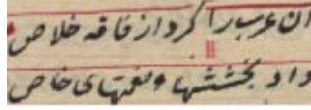 آن عرب را کرد از فاقه خلاص
داد بخششها و نعتهای خاص